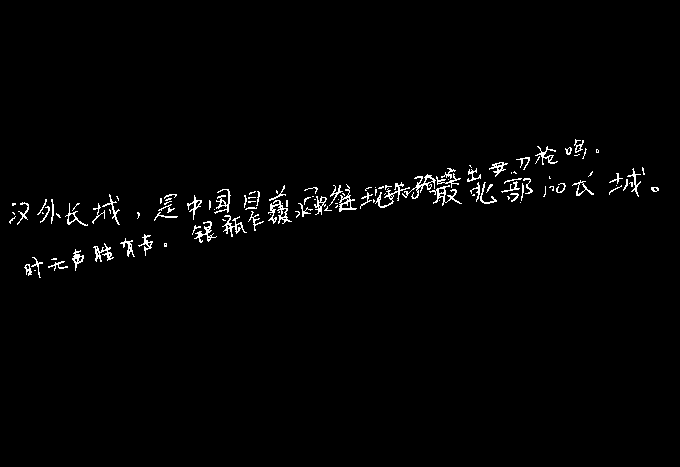 汉外长城，是中国目前现最北部的长城。
时无声胜有声。银瓶乍破水浆迸铁骑突出刀枪鸣。